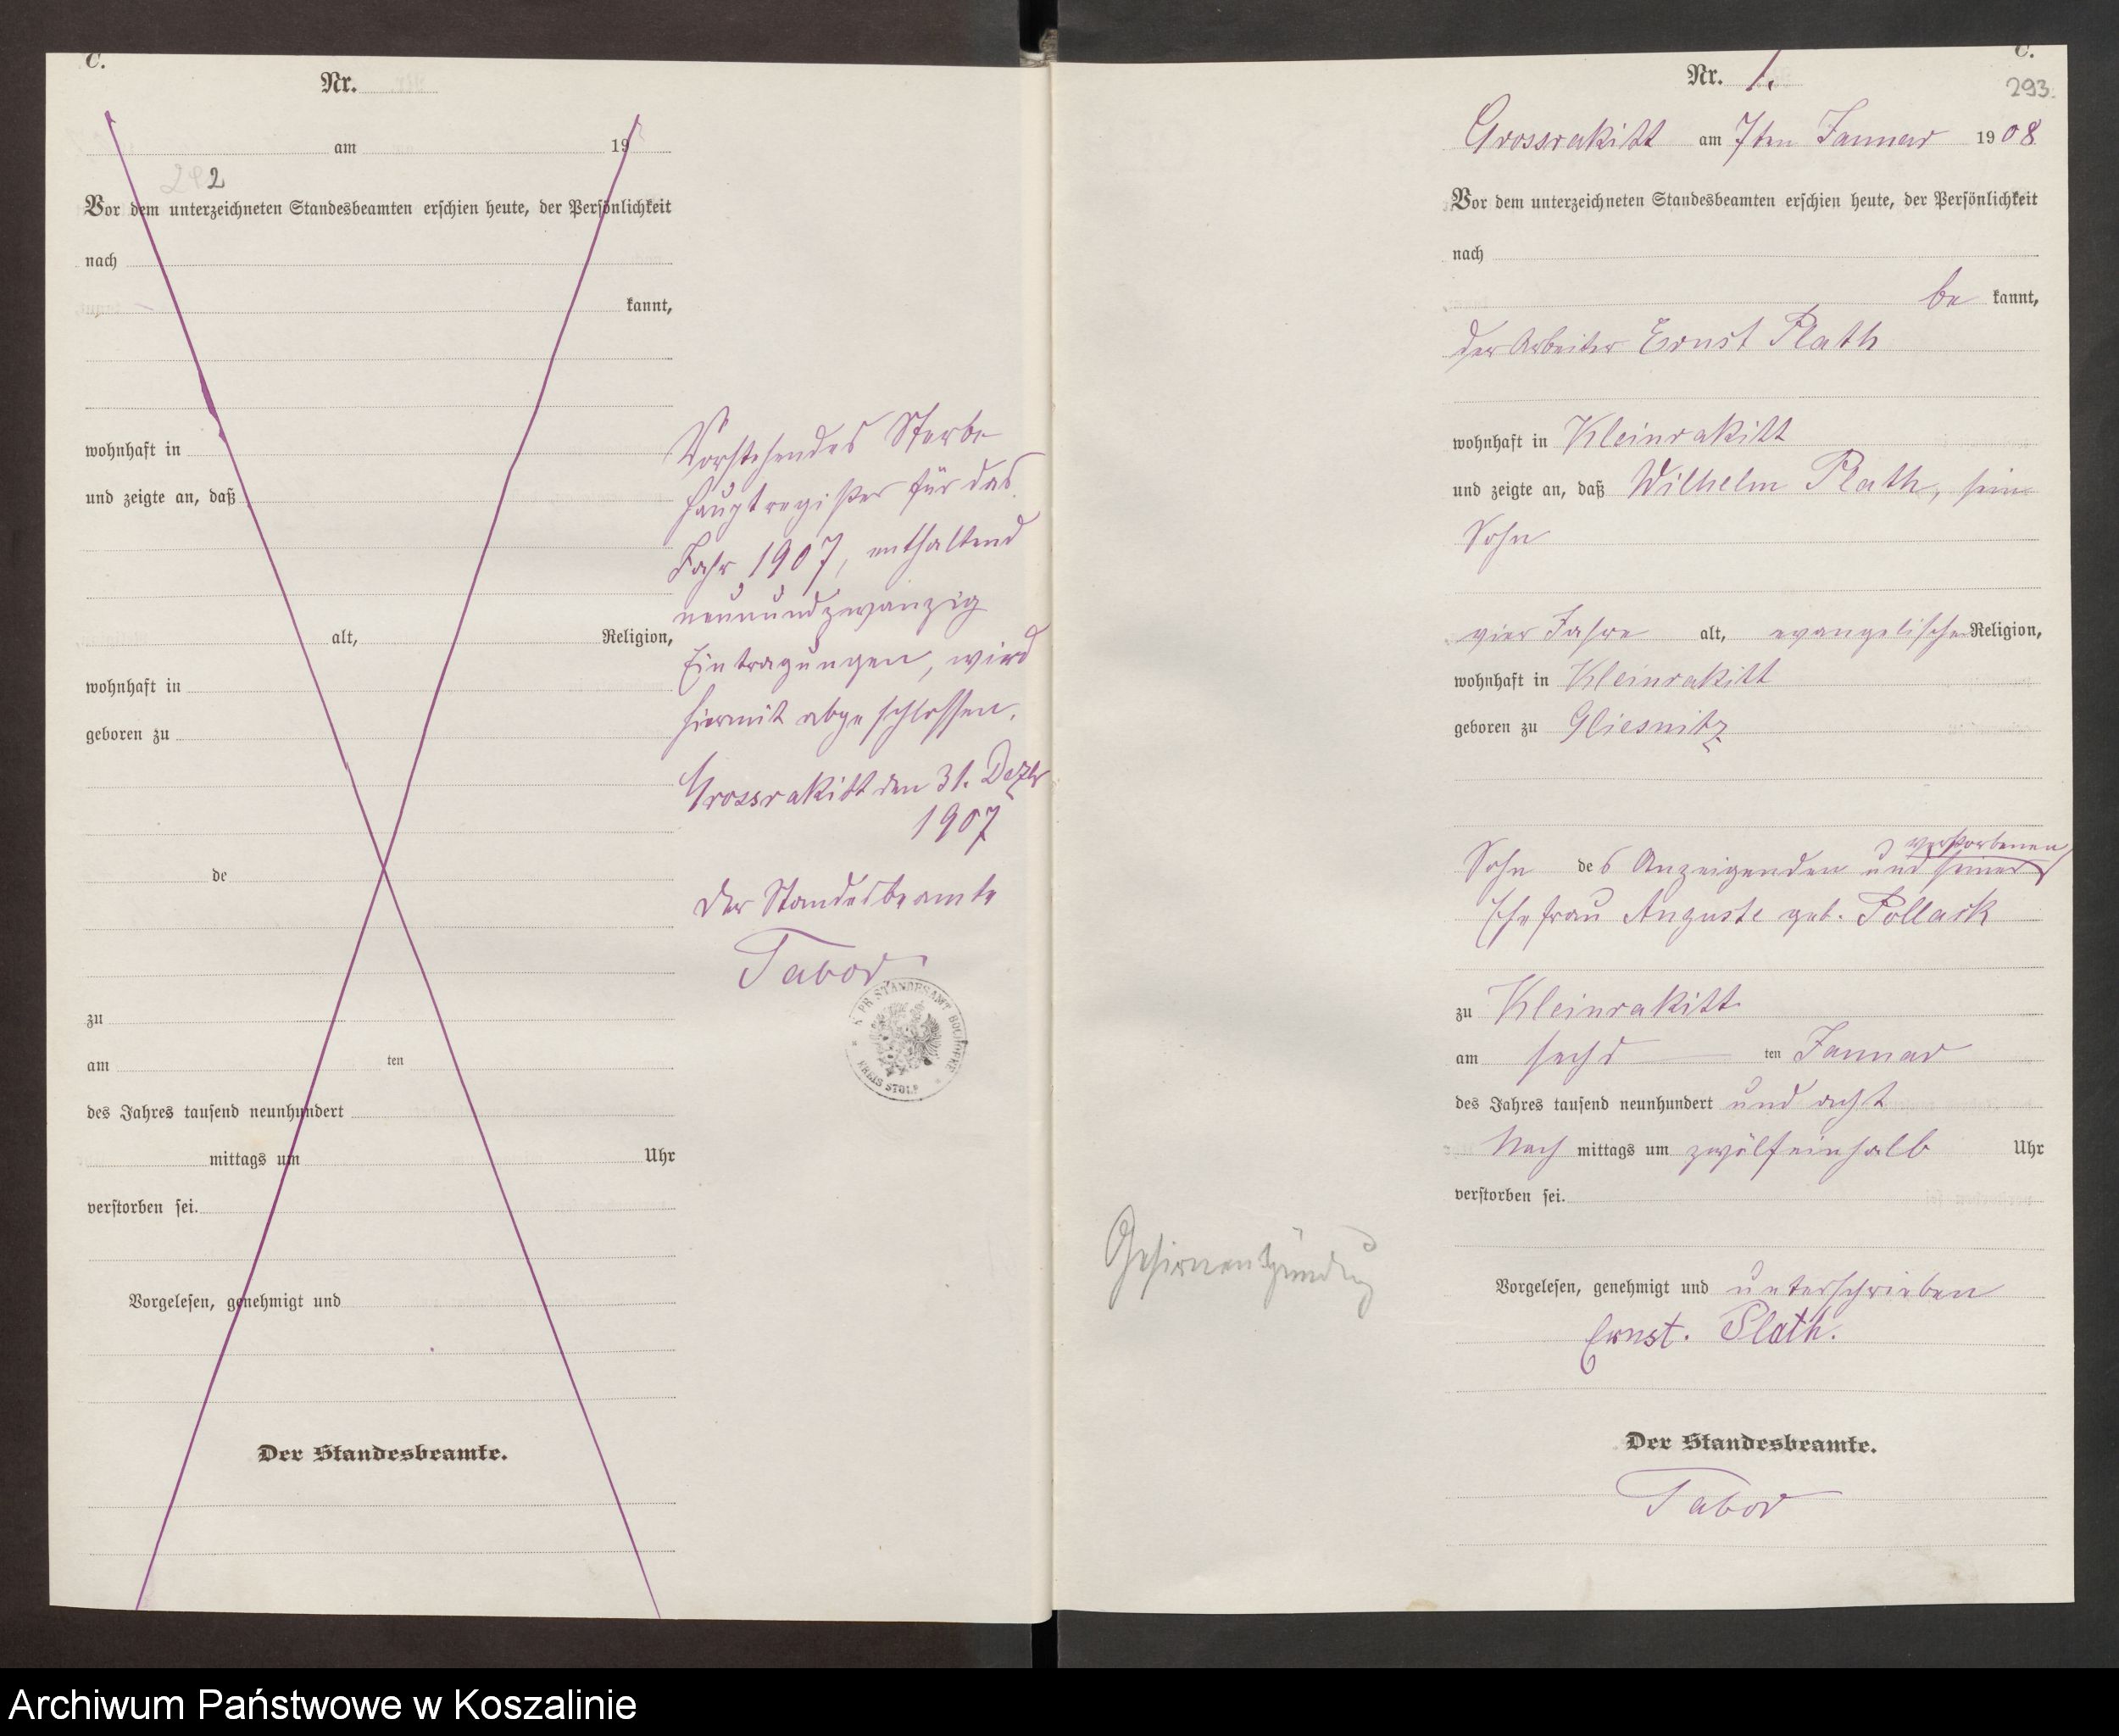 C.
Nr.
am 19
292
Vor dem unterzeichneten Standesbeamten erschien heute, der Persönlichkeit
nach
kannt,
wohnhaft in
und zeigte an, daß
alt, Religion,
wohnhaft in
geboren zu
de
zu
am ten
des Jahres tausend neunhundert
mittags um Uhr
verstorben sei.
Vorgelesen, genehmigt und
Der Standesbeamte.
Vorstehendes Sterbe
hauptregister für das
Jahr 1907, enthaltend
neunundzwanzig
Eintragungen, wird
hiermit abgeschlossen.
Grossrakitt den 31. Dezbr
1907
Der Standesbeamte
Tabor
K. PR. STANDESAMT
KREIS STOLP
C.
Nr. 1.
293.
Grossrakitt am 7ten Januar 1908
Vor dem unterzeichneten Standesbeamten erschien heute, der Persönlichkeit
nach
be kannt,
der Arbeiter Ernst Plath
wohnhaft in Kleinrakitt
und zeigte an, daß Wilhelm Plath, sein
Sohn
vier Jahre alt, evangelischer Religion,
wohnhaft in Kleinrakitt
geboren zu Gliesnitz
verstorbenen
Sohn des Anzeigenden und seiner
Ehefrau Auguste geb. Pollack
zu Kleinrakitt
am sechsten Januar
des Jahres tausend neunhundert und acht
Nach mittags um zwölfeinhalb Uhr
verstorben sei.
Gehirnentzündung
Vorgelesen, genehmigt und unterschrieben
Ernst. Plath.
Der Standesbeamte.
Tabor
Archiwum Państwowe w Koszalinie